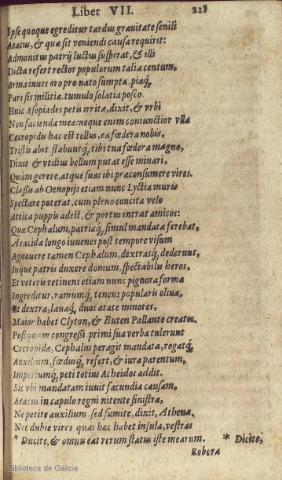 Liber VII. 221
Ipse quoque egreditur tardus grauitate senili
Aeacus, & quæ sit veniendi causa requirit:
Admonitus patrij luctus suspirat, & illi
Dicta refert rector populorum talia centum,
Arma iuues oro pro nato sumpta, piæq;
Pars sis militiæ. tumulo solatia posco.
Huic Asopiades petis irrita, dixit, & vrbi
Non facienda meæ: neque enim coniunctior vlla
Cecropidis hac est tellus, ea fœdera nobis,
Tristis abit. stabuntq́; tibi tua fœdera magno,
Dixit & vtilius bellum putat esse minari,
Quàm gerere, atque suas ibi præconsumere vires.
Classis ab Oenopijs etiam nunc Lyctia muris
Spectari poterat, cum pleno concita velo
Attica puppis adest, & portus intrat amicos:
Quæ Cephalum, patriæq́; simul mandata ferebat,
Aeacidæ longo iuuenes post tempore visum
Agnouere tamen Cephalum. dextrasq́; dederunt,
Inque patris duxere domum. spectabilis heros,
Et veteris retinens etiam nunc pignora formæ
Ingreditur, ramumq́; tenens popularis oliuæ,
dextra, læuaq́; duos ætate minores
Maior habet Clyton, & Buten Pallante creatos.
Postquam congressus primi sua verba tulerunt
Cecropidæ, Cephalus peragit mandata, rogatq́;
Auxilium, fœdusq́; refert, & iura parentum,
Imperiumq́; peti totius Acheidos addit.
Sic vbi mandatam iuuit facundia causam,
Aeacus in capulo regni nitente sinistra,
Ne petite auxilium sed sumite, dixit, Athenæ,
Nec dubie vires quas hæc habet insula, vestras
* Ducite, & omnis eat rerum status iste mearum. * Dicite,
Robora
Biblioteca de Galicia